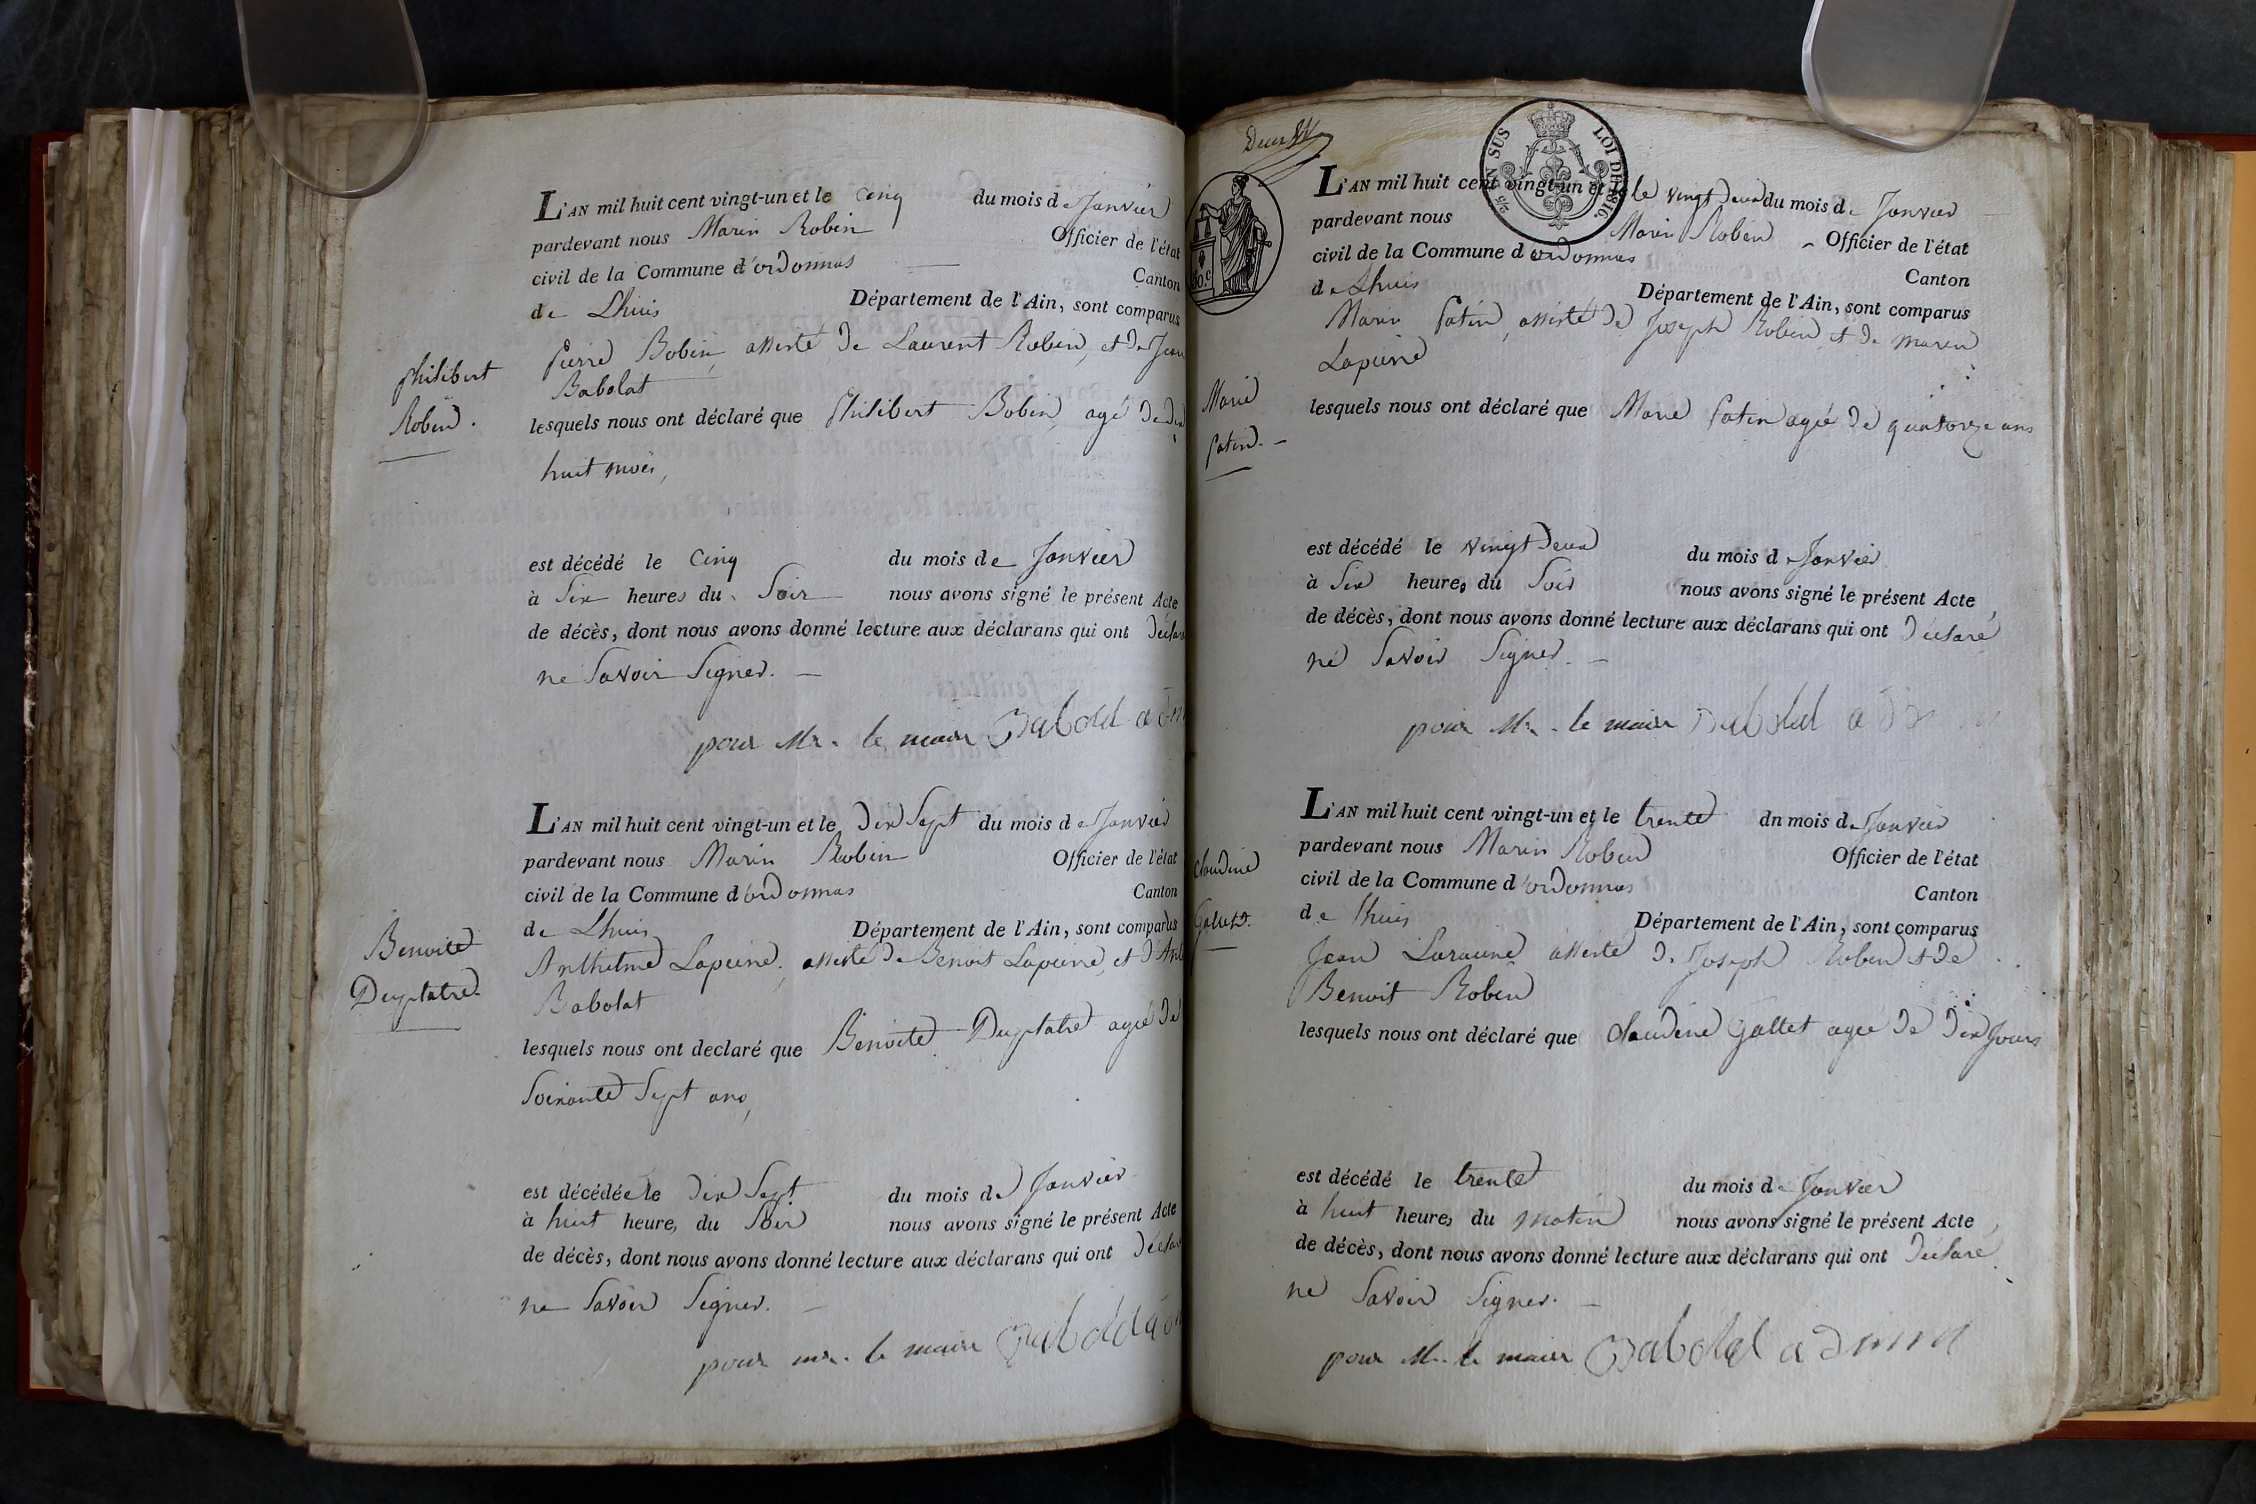 L'AN mil huit cent vingt-un et le cinq du mois de Janvier
pardevant nous Marin Robin Officier de l'état
civil de la Commune d'ordonnas Canton
de Lhuis Département de l'Ain, sont comparus
pierre Robin, assisté de Laurent Robin, et de Jean
Babolat
philibert
Robin.
lesquels nous ont déclaré que philibert Robin agé de dix
huit mois,
est décédé le cinq du mois de Janvier
à Six heures du Soir nous avons signé le présent Acte
de décès, dont nous avons donné lecture aux déclarans qui ont
ne Savoir Signer.
pour Mr. le maire Babolat
L'AN mil huit cent vingt-un et le dix Sept du mois de Janvier
pardevant nous Marin Robin Officier de l'état
civil de la Commune d'ordonnas Canton
de Lhuis Département de l'Ain, sont comparus
Benoite
Duplatre.
Anthelme Lapierre, assisté de Benoit Lapierre, et d'
Babolat
lesquels nous ont declaré que Benoite Duplatre agée de
Soixante Sept ans,
est décédée le dix Sept du mois de Janvier
à huit heures du Soir nous avons signé le présent Acte
de décès, dont nous avons donné lecture aux déclarans qui ont
ne Savoir Signer.
pour mr. le maire Babolat
EN SUS
LOI DE 1816.
L'AN mil huit cent vingt-un et le vingt deux du mois de Janvier
pardevant nous Marin Robin Officier de l'état
civil de la Commune d'ordonnas Canton
de Lhuis Département de l'Ain, sont comparus
Marin patin, assisté de Joseph Robin et de marin
Lapierre
Marie
patin.
lesquels nous ont déclaré que Marie patin agée de quatorze ans
est décédé le vingt deux du mois d Janvier
à Six heures du Soir nous avons signé le présent Acte
de décès, dont nous avons donné lecture aux déclarans qui ont déclaré
ne Savoir Signer.
pour Mr. le maire Babolat
L'AN mil huit cent vingt-un et le trente dn mois de Janvier
pardevant nous Marin Robin Officier de l'état
civil de la Commune d'ordonnas Canton
de lhuis Département de l'Ain, sont comparus
claudine
Gallet.
Jean assisté de Joseph Robin et de
Benoit Robin
lesquels nous ont déclaré que claudine Gallet agée de dix Jours
est décédé le trente du mois de Janvier
à huit heures du matin nous avons signé le présent Acte
de décès, dont nous avons donné lecture aux déclarans qui ont déclaré
ne Savoir Signer.
pour Mr. le maire Babolat